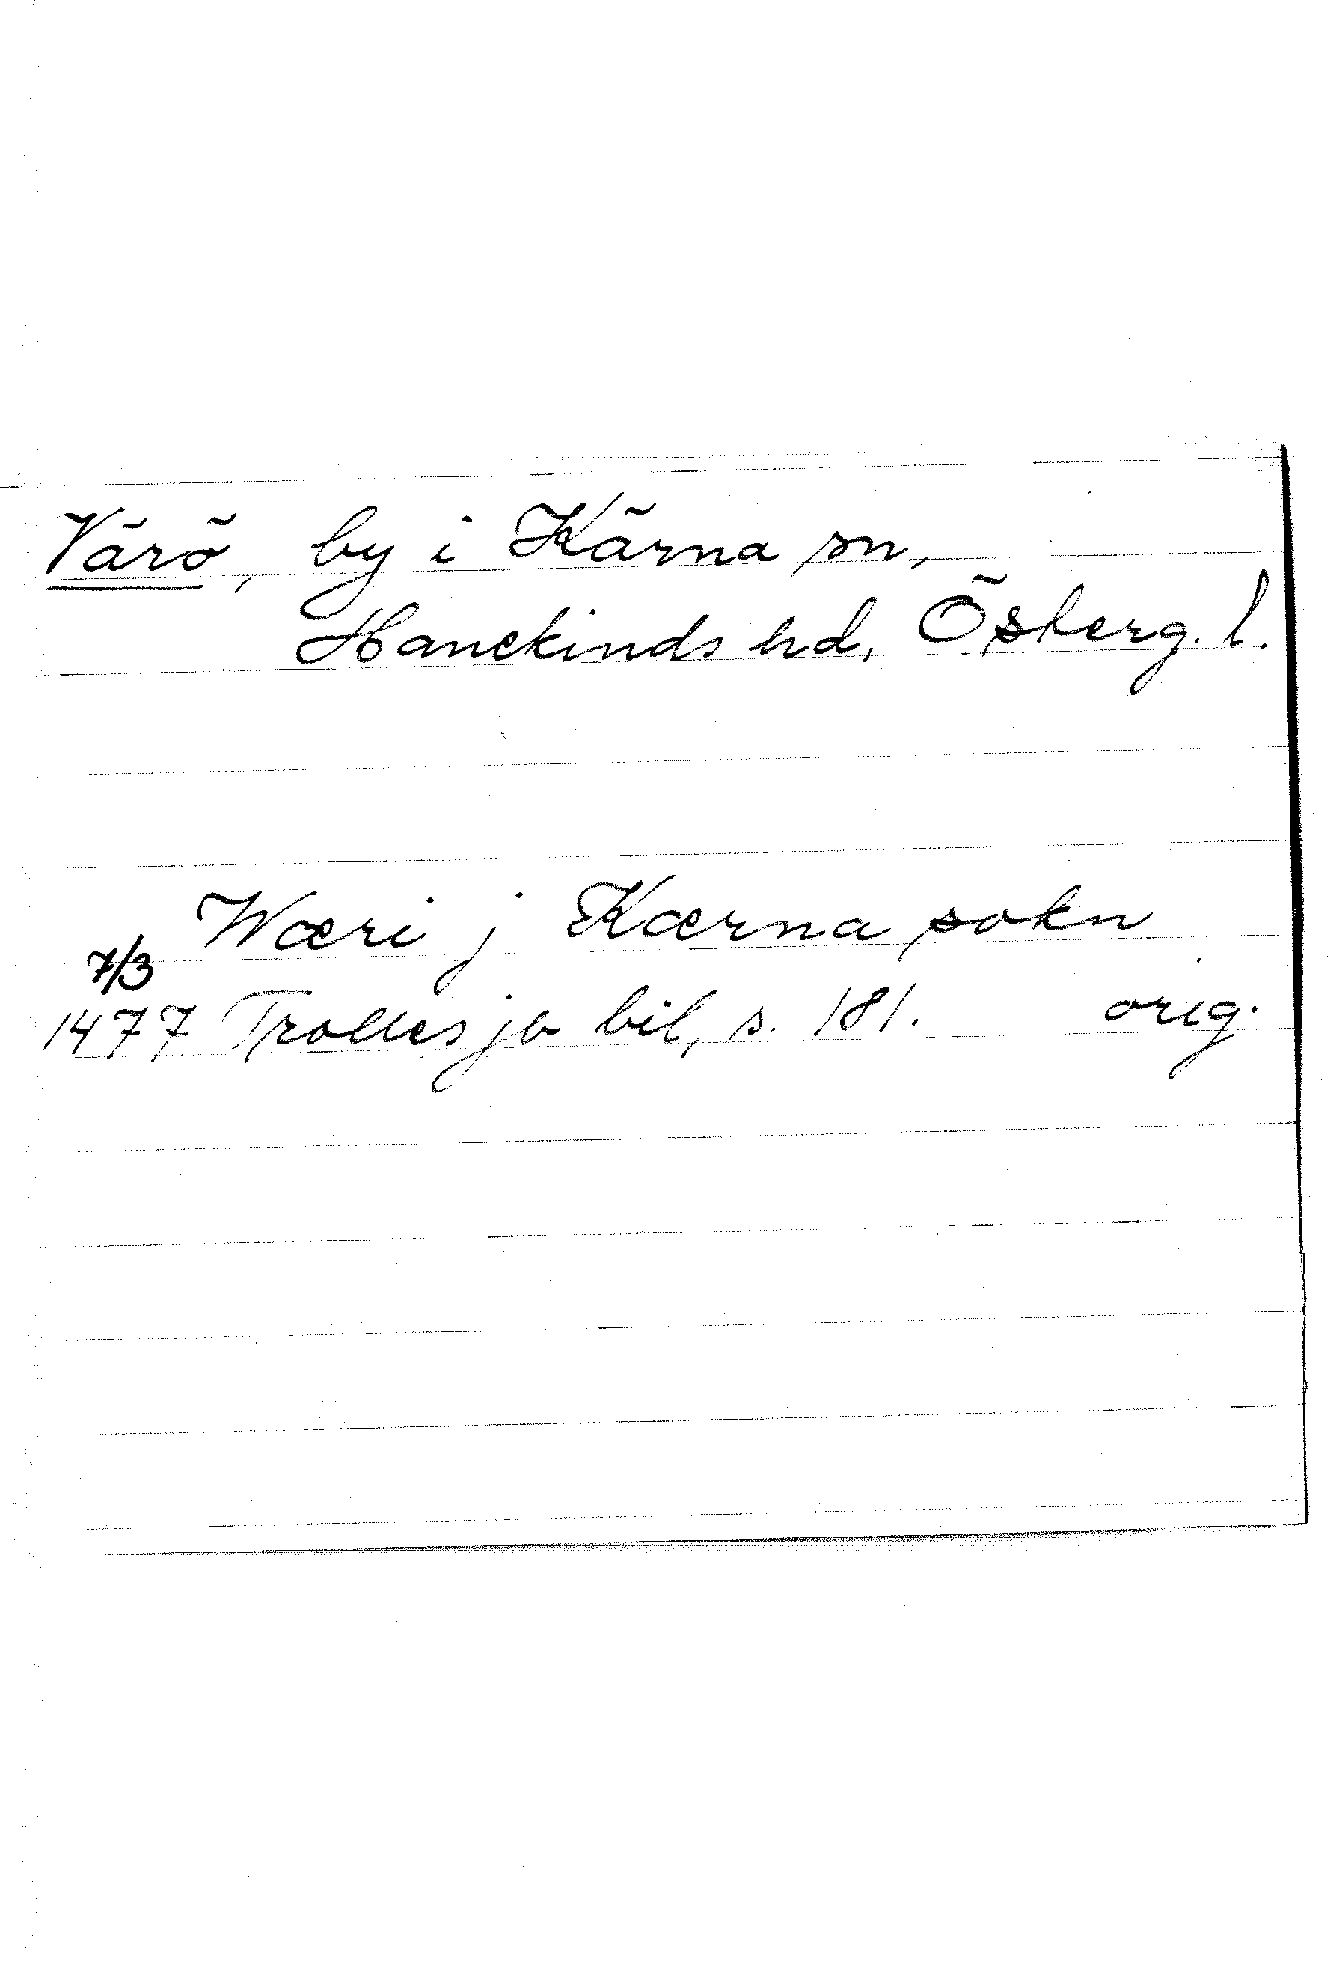 Värö, by i Kärna sn,
Hanekinds hd, Österg. l.
Wæri j Kærna sokn
7/3
1477 Trolles jb bil, s. 181. orig.